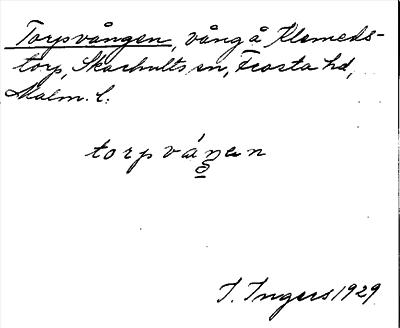 Torpsvången, vång å Klemeds-
torp, Skarhults sn, Frosta hd,
Malm. l.
torpváŋen
I. Ingers 1929